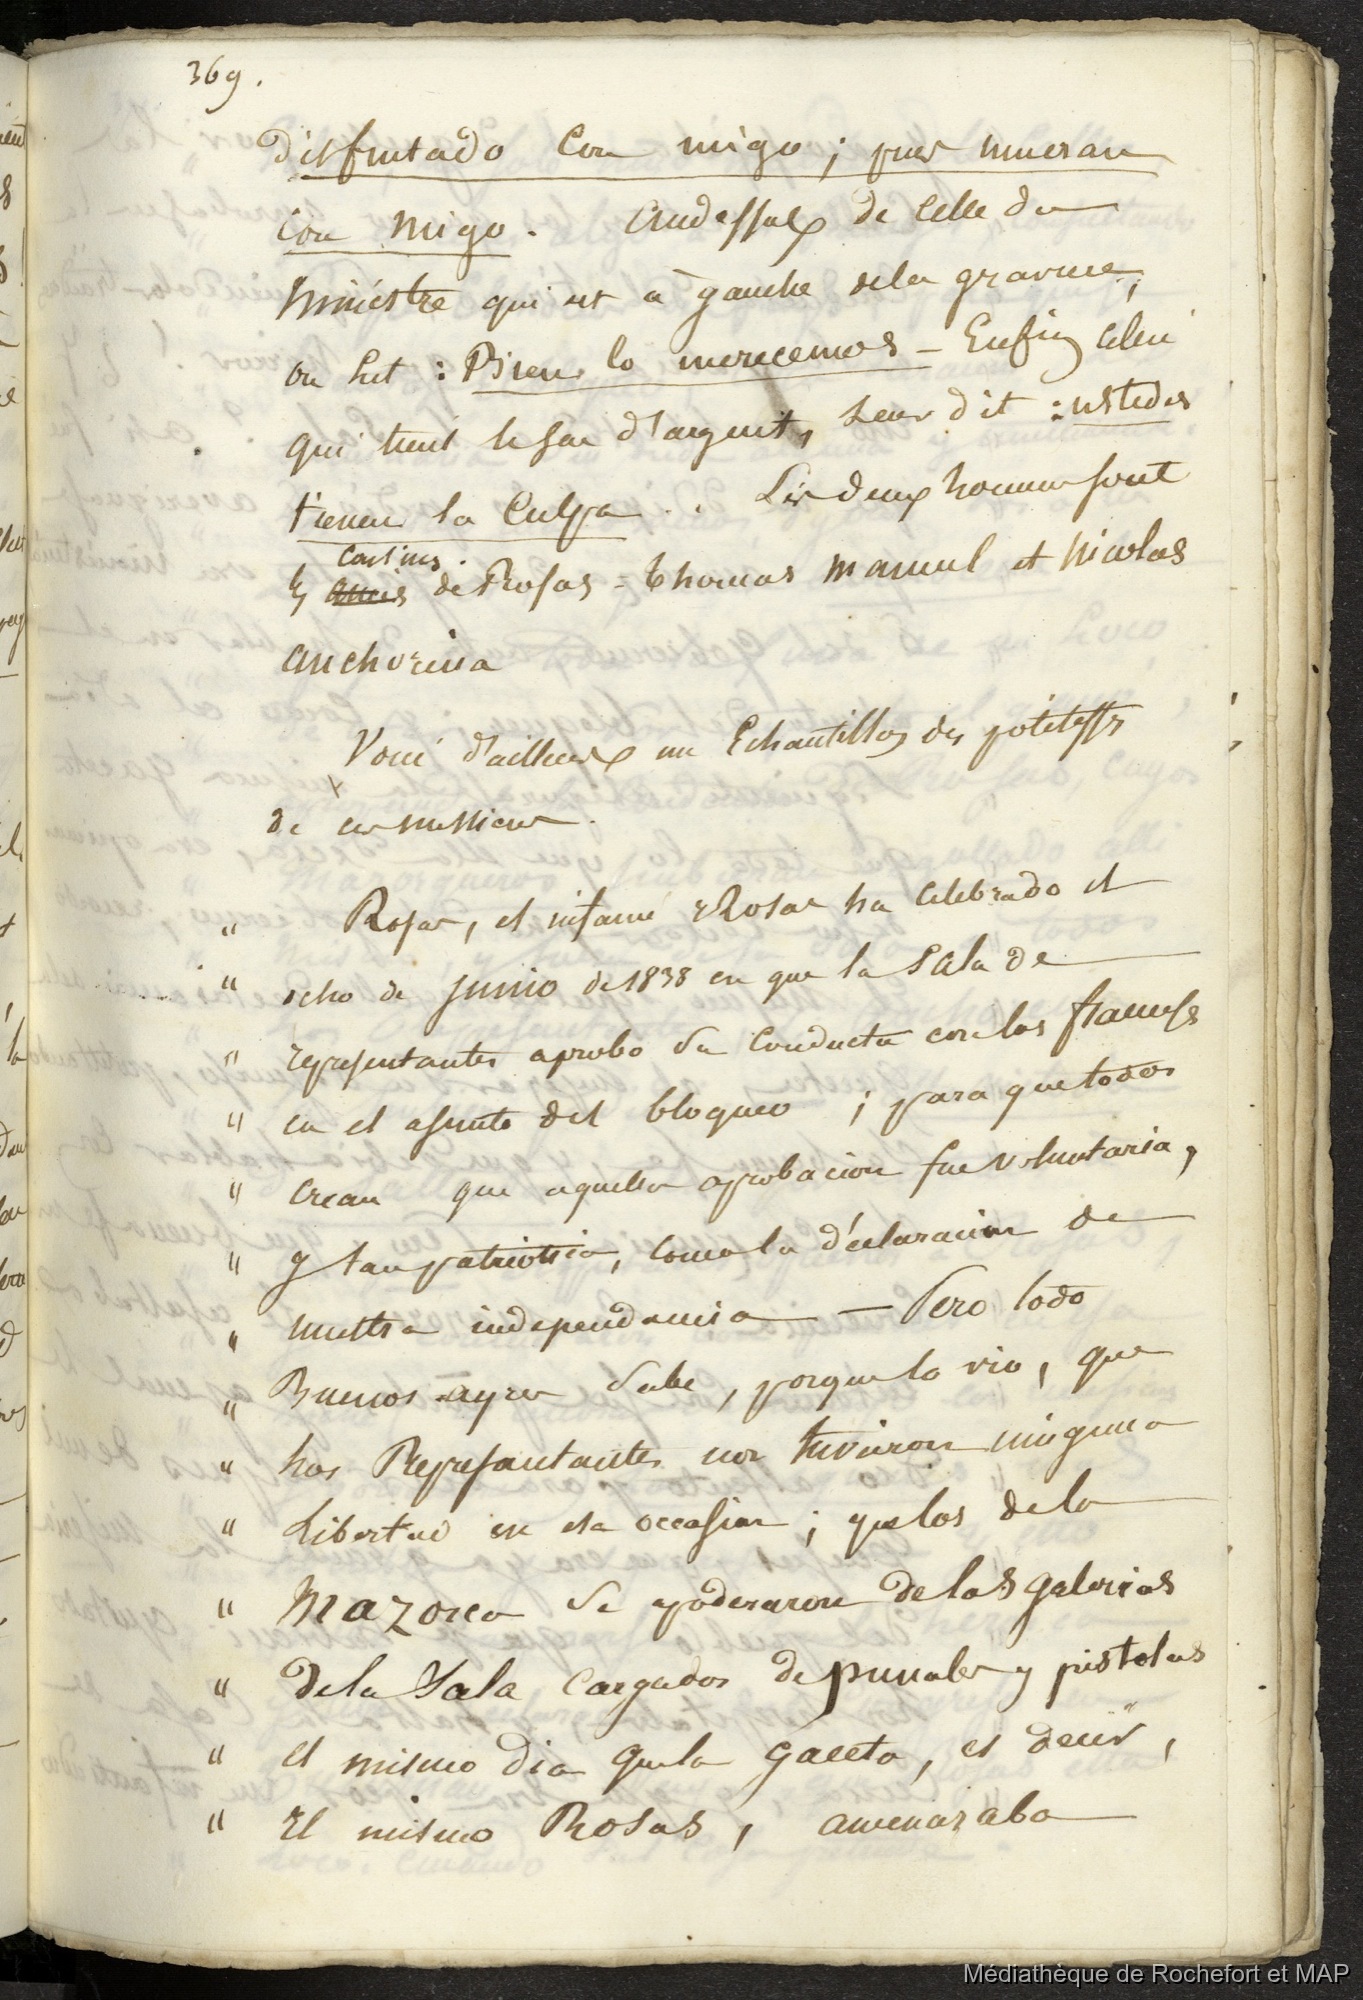 369.
disfrutado con migo ; pues mueran
con migo. Audessus de celle du
Ministre qui est à gauche dela gravure,
on lit : Bien lo merecemos - Enfin celui
qui tient le sac d'argent, leur dit : ustedes
tienen la culpa . Les deux hommes sont
cousins.
les amis de Rosas = Thomas Manuel et Nicolas
anchorena
Voici d'ailleurs un Echantillon des politesses
de ces messieurs.
" Rosas, el infame Rosas ha celebrado el
" ocho de junio de 1838 en que la sala de
" representantes aprobo su conducta con los franceses
" en el asunto del bloqueo ; para que todos
" crean que aquella aprobacion fue voluntaria,
" y tan patriotica, como la déclaracion de
" nuestra independancia — Pero todo
" Buenos-ayres sabe, porque lo vio, que
" los Representantes non tuvieron ninguna
" libertad en esa occasion ; que los de la
" Mazorca se apoderaron de las galerias
" de la Sala cargados de punales y pistolas
" el mismo dia que la gaceta, es decir,
" El mismo Rosas, amenazaba
Médiathèque de Rochefort et MAP